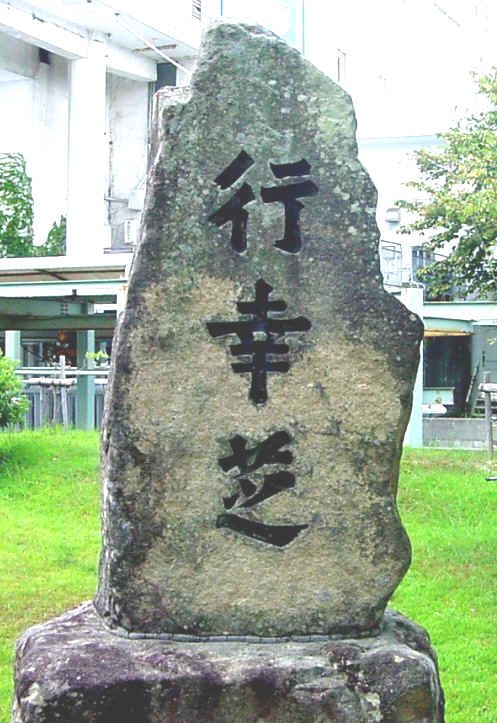 行幸芝